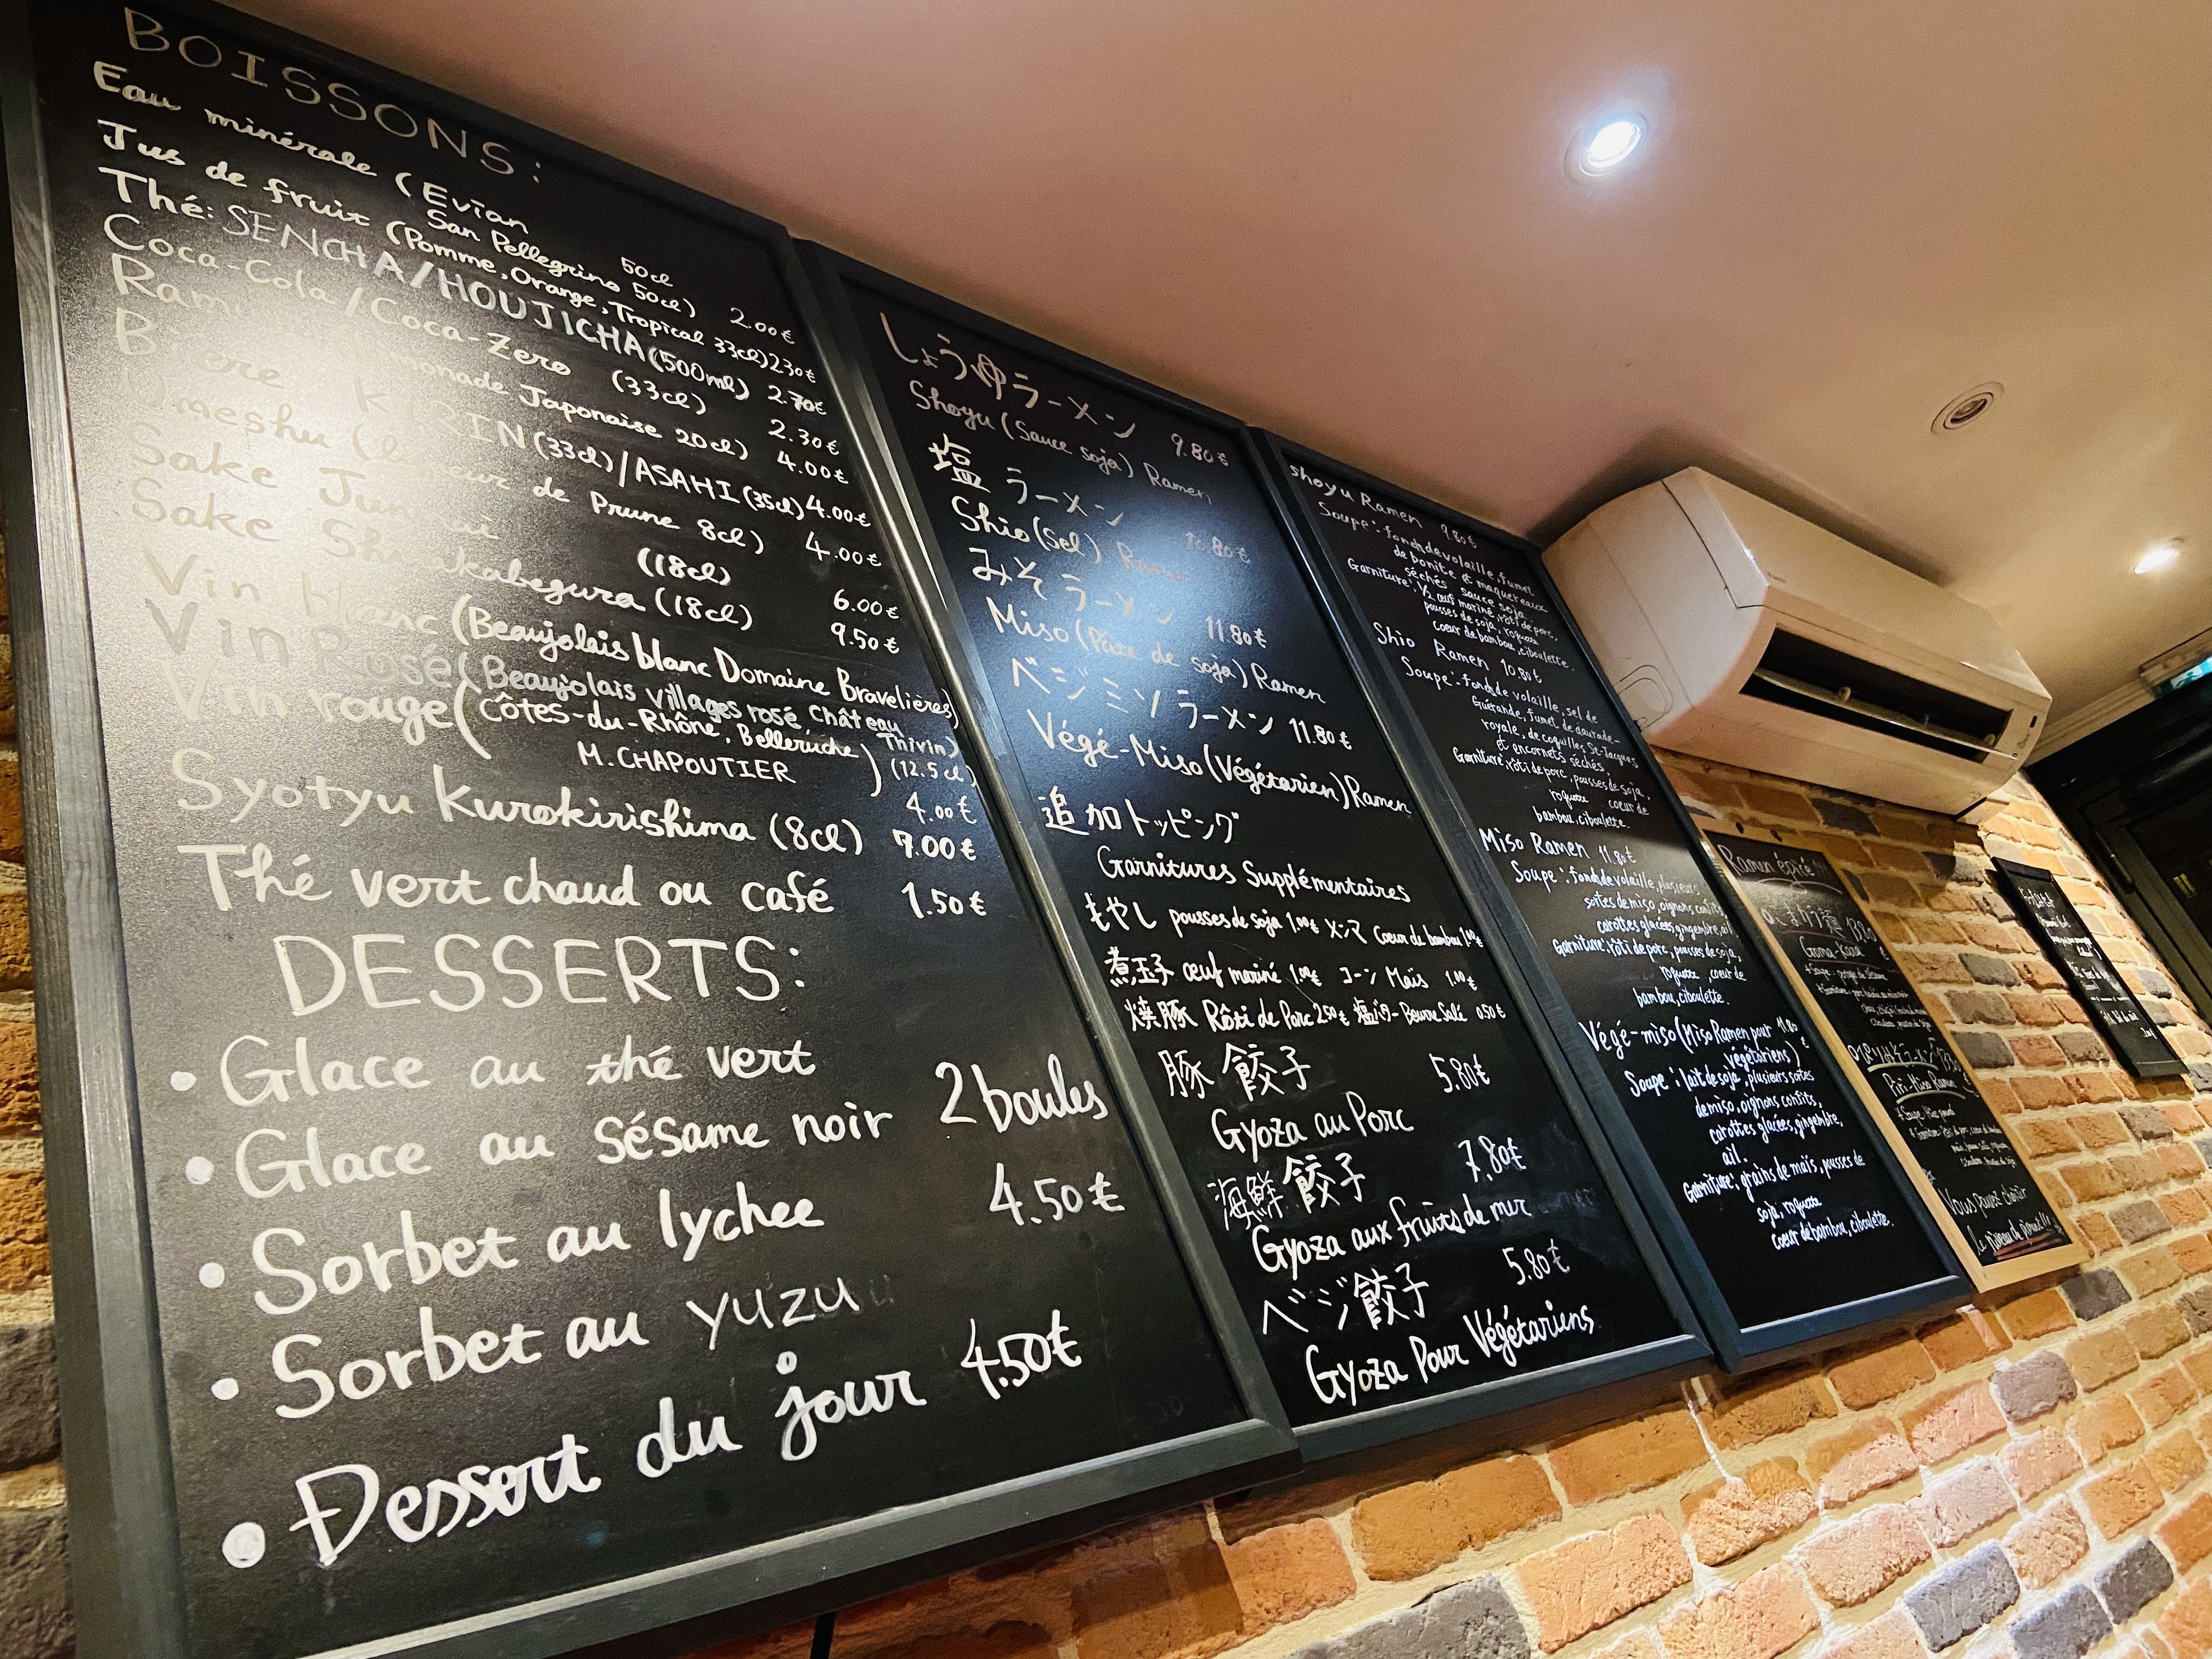 BOISSONS:
Eau minérale (Evian 50cl
San Pellegrino 50cl) 2.00€
Jus de fruit (Pomme, Orange, Tropical 33cl) 2.30€
Thé: SENCHA/HOUJICHA (500ml) 2.70€
Coca-Cola/Coca-Zero (33cl) 2.30€
Japonaise 20cl) 4.00€
KIRIN (33cl)/ASAHI (35cl) 4.00€
Umeshu de Prune 8cl) 4.00€
Sake (18cl) 6.00€
Sake (18cl) 9.50€
Vin blanc (Beaujolais blanc Domaine Bravelières)
Vin Rosé (Beaujolais villages rosé Château Thivin)
Vin rouge (Côtes-du-Rhône, Belleruche
M.CHAPOUTIER) (12.5cl)
4.00€
Syotyu Kurokirishima (8cl) 7.00€
Thé vert chaud ou café 1.50€
DESSERTS:
• Glace au thé vert
• Glace au sésame noir 2 boules
• Sorbet au lychee 4.50€
• Sorbet au yuzu
• Dessert du jour 4.50€
しょうゆラーメン 9.80€
Shoyu (Sauce soja) Ramen
塩ラーメン 10.80€
Shio (Sel) Ramen
みそラーメン 11.80€
Miso (Pâte de soja) Ramen
ベジミソラーメン 11.80€
Végé-Miso (Végétarien) Ramen
追加トッピング
Garnitures Supplémentaires
もやし pousses de soja 1.00€ メンマ Coeur de bambou 1.00€
煮玉子 œuf mariné 1.00€ コーン Maïs 1.00€
焼豚 Rôti de Porc 2.50€ 塩バター Beurre Salé 0.50€
豚餃子 5.80€
Gyoza au Porc
海鮮餃子 7.80€
Gyoza aux fruits de mer
ベジ餃子 5.80€
Gyoza Pour Végétariens
Shoyu Ramen 9.80€
Soupe: fond de volaille, fumet
de bonite et maquereaux
séchés sauce soja
Garniture: 1/2 œuf mariné, rôti de porc,
pousses de soja, roquette
coeur de bambou, ciboulette.
Shio Ramen 10.80€
Soupe: fond de volaille, sel de
Guérande, fumet de daurade-
royale, de coquilles St-Jacques
et encornets sechés.
Garniture: rôti de porc, pousses de soja,
roquette coeur de
bambou, ciboulette.
Miso Ramen 11.80€
Soupe: fond de volaille, plusieurs
sortes de miso, oignons confits,
carottes glacées, gingembre, ail
Garniture: rôti de porc, pousses de soja,
roquette coeur de
bambou, ciboulette.
Végé-miso (Miso Ramen pour 11.80€
végétariens)
Soupe: lait de soja, plusieurs sortes
de miso, oignons confits,
carottes glacées, gingembre,
ail.
Garniture: grains de maïs, pousses de
soja, roquette
coeur de bambou, ciboulette.
Ramen épicé !!!
Piri-Miso Ramen
Vous pouvez choisir
le niveau de piquant!!!